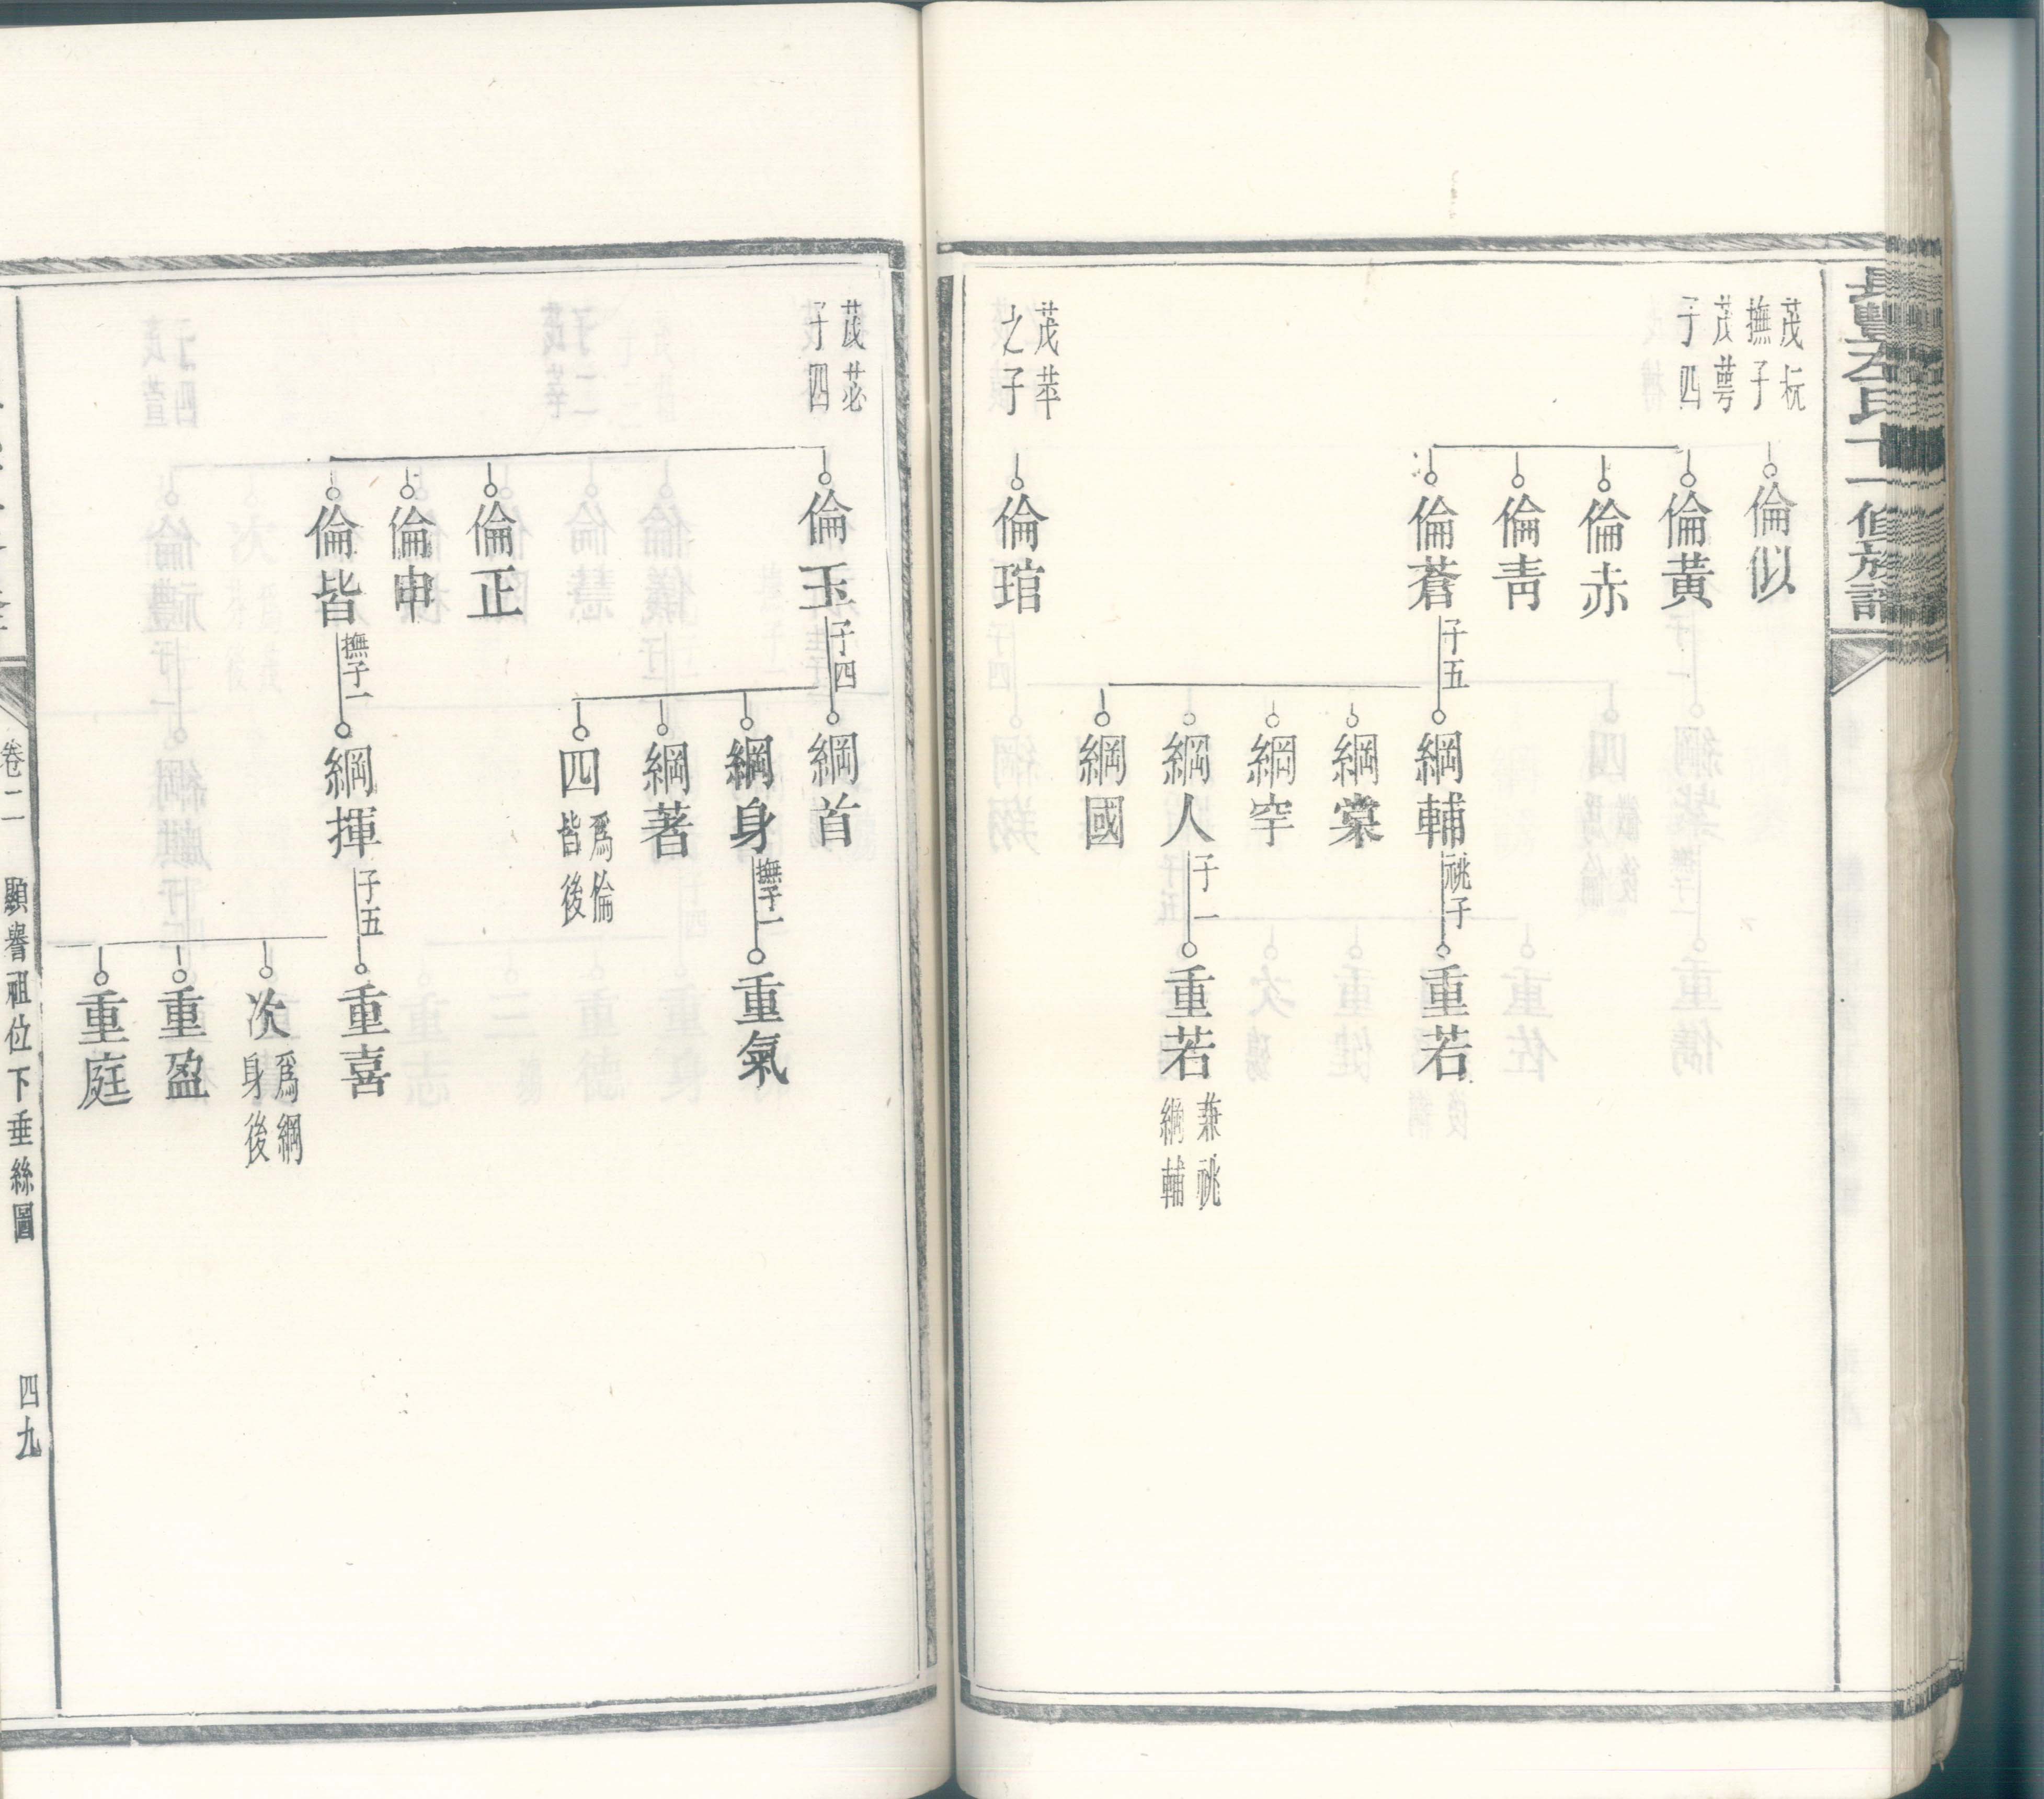 長豐左氏十一修族譜
茂杬
撫子
茂萼
子四
倫似
倫黃
倫赤
倫青
倫蒼
子五
綱輔
祧子
重若
綱棠
綱罕
綱人
子一
重若
兼祧
綱輔
綱國
茂苹
之子
倫琯
茂苾
子四
倫玉
子四
綱首
綱身
撫子一
重氣
綱著
四
爲倫
皆後
倫正
倫申
倫皆
撫子一
綱揮
子五
重喜
次
爲綱
身後
重盈
重庭
卷二
顯譽祖位下垂絲圖
四九